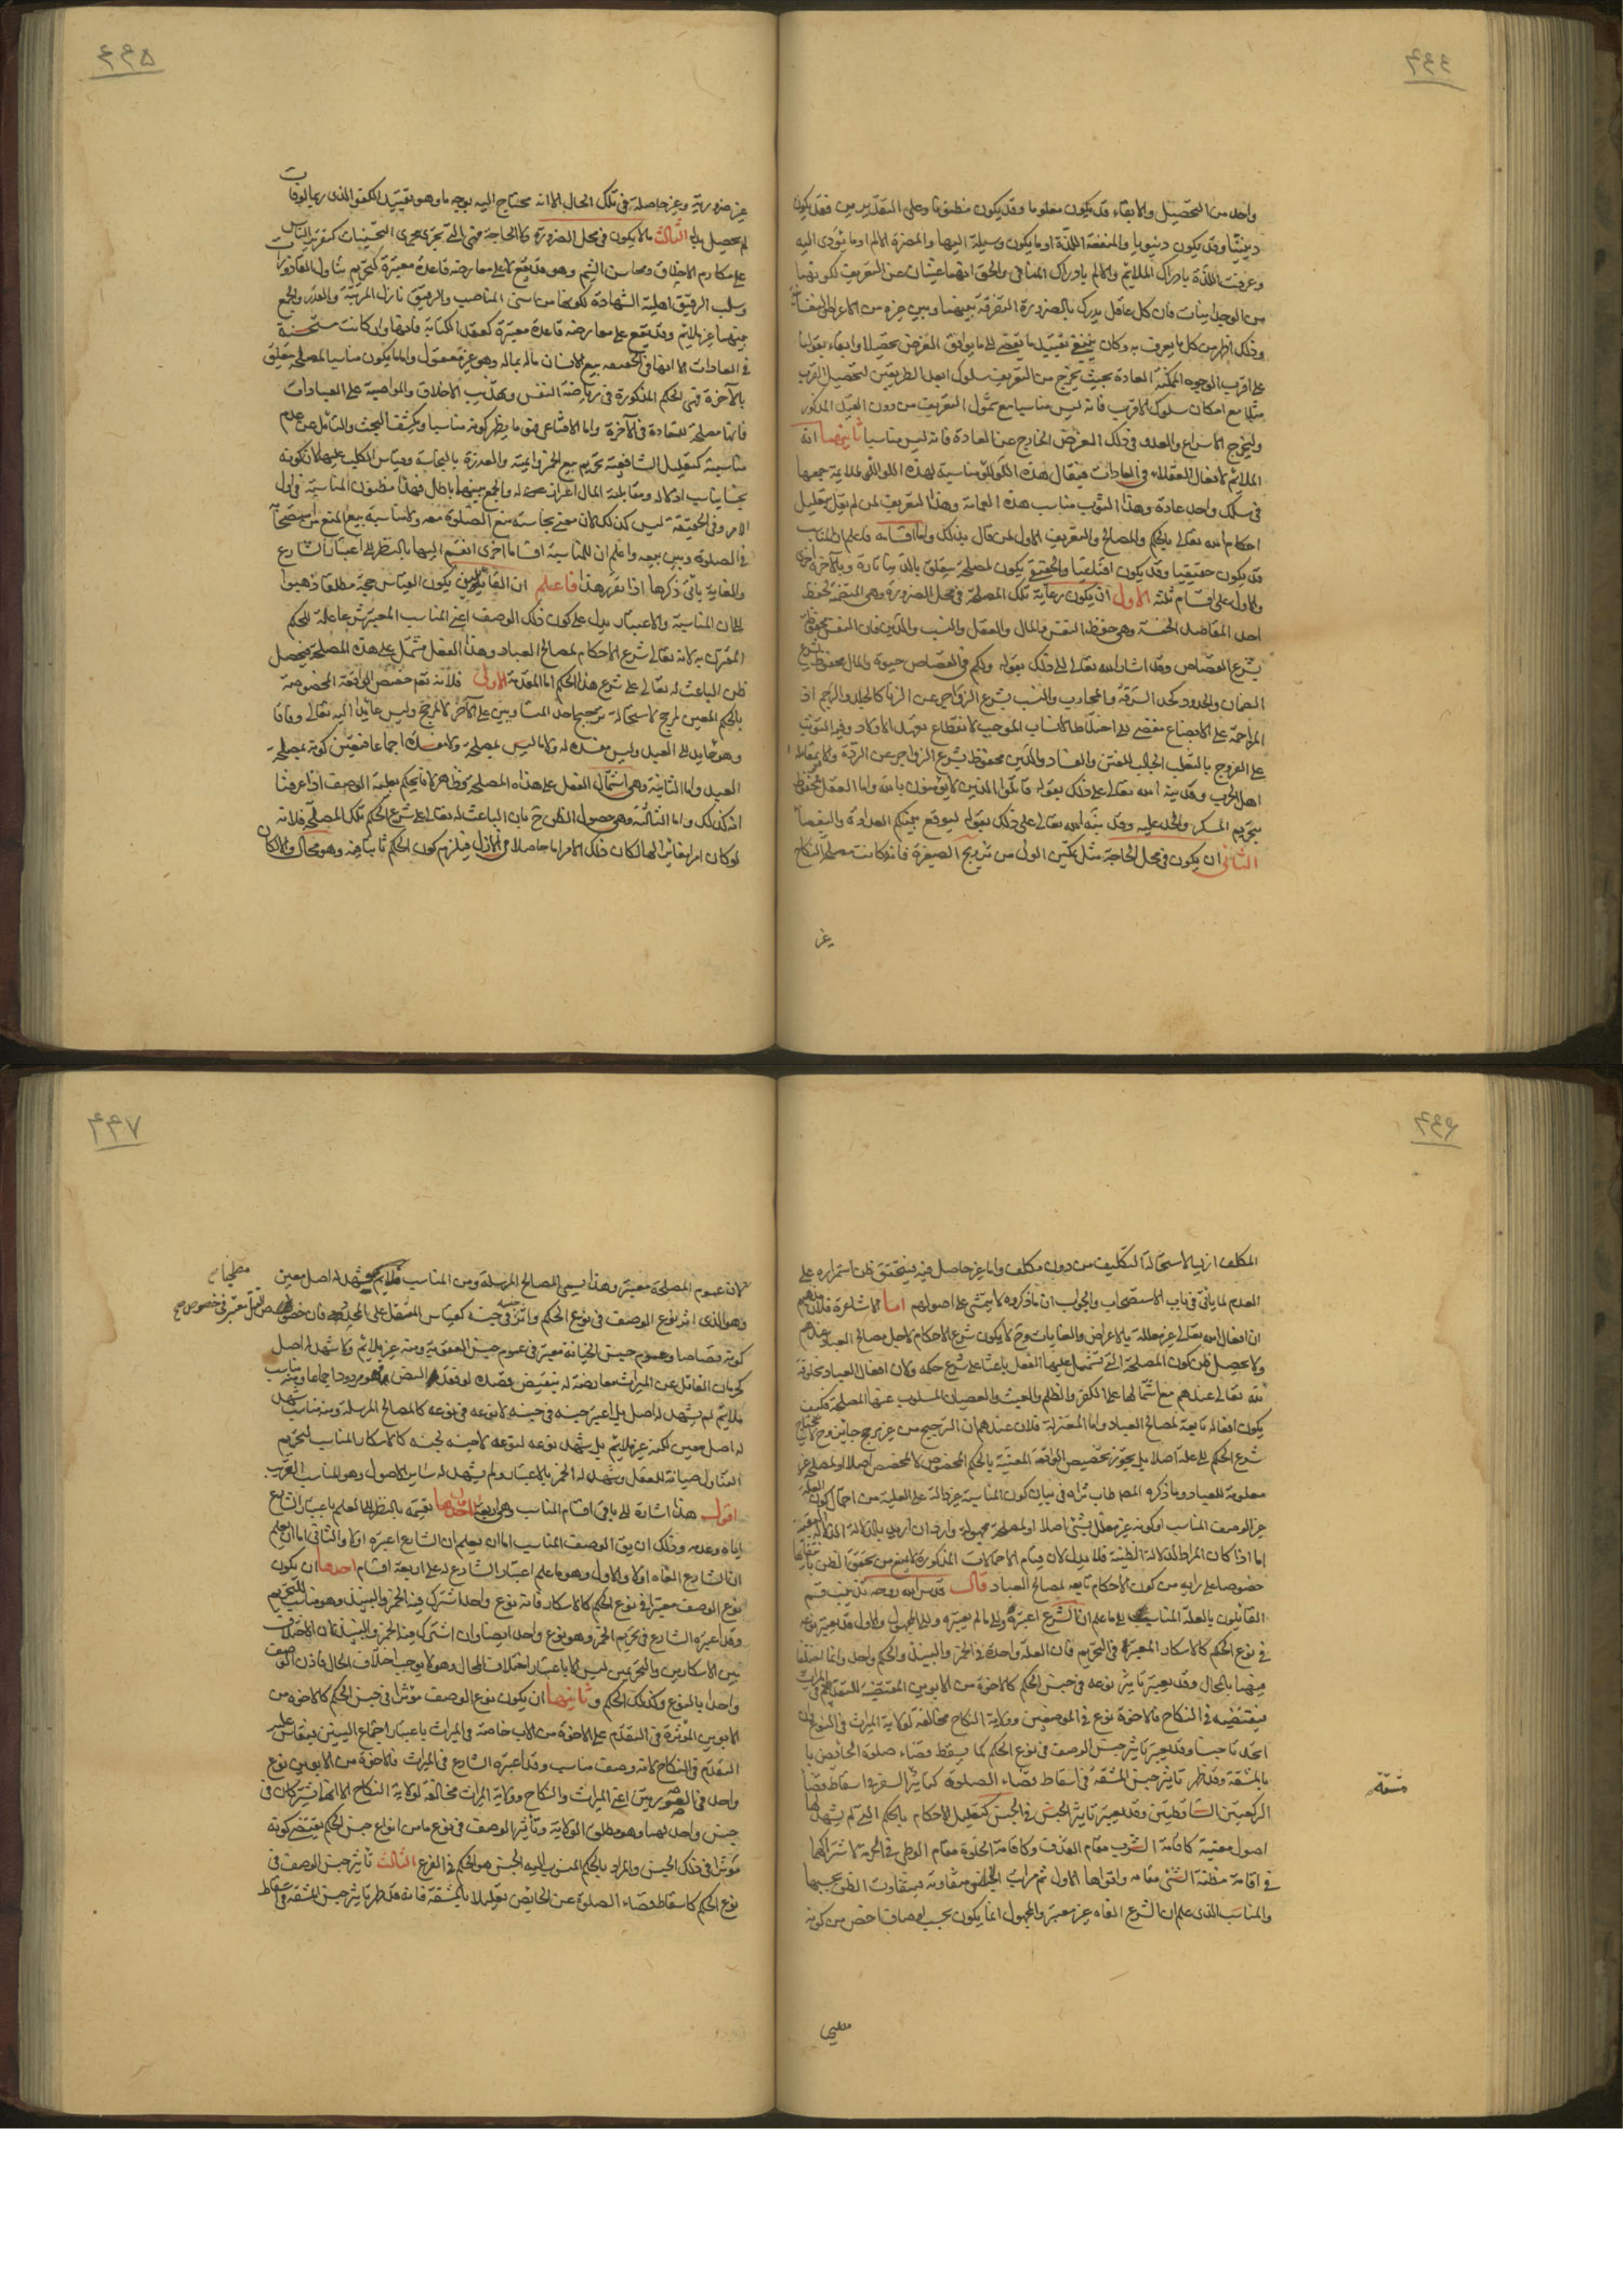 واحد من التحصيل والابقاء قد يكون معلوما وقد يكون مظنونا وعلى التقديرين فقد يكون
دينيا وقد يكون دنيويا والمنفعة اللذة او ما يكون وسيلة اليها والمضرة الالم او ما يؤدى اليه
وعرفت اللذة بادراك الملائم والالم بادراك المنافى والحق انهما غنيان عن التعريف لكونهما
من الوجدانيات فان كل عاقل يدرك بالضرورة التفرقة بينهما وبين غيره من الاعراض النفسانية
وذلك اظهر من كل ما يعرف به وكان ينبغى تقييد ما يفضى الى ما يوافق الغرض تحصيلا وابقاء بقولنا
على اقرب الوجوه الممكنة المعادة بحيث يخرج من التعريف سلوك ابعد الطريقين لتحصيل القرب
مثلا مع امكان سلوك الاقرب فانه ليس مناسبا مع شمول التعريف من دون القيد المذكور
وليخرج الاسراع والعدو فى ذلك الغرض الخارج عن العادة فانه ليس مناسبا ثانيهما انه
الملائم لافعال العقلاء فى العادات فيقال هذه اللؤلؤة مناسبة لهذه اللؤلؤة لملايمة جمعها
فى سلك واحد عادة وهذا الثوب مناسب هذه العمامة وهذا التعريف لمن لم يعلل بتعليل
احكام الله تعالى بالحكم والمصالح والتعريف الاول لمن قال بذلك واما اقسامه فاعلم ان المناسب
قد يكون حقيقيا وقد يكون اقناعيا والحقيقى يكون لمصلحة يتعلق بالدنيا تارة وبالآخرة اخرى
والاول على اقسام ثلثة الاول ان يكون رعاية تلك المصلحة فى محل الضرورة وهى المتضمنة لحفظ
احد المقاصد الخمسة وهى حفظ النفس والمال والعقل والنسب والدين فان النفس محفوظة
بشرع القصاص وقد اشار الله تعالى الى ذلك بقوله ولكم فى القصاص حيوة والمال محفوظ بشرع
الضمان والحدود كحد السرقة والمحارب والنسب بشرع الزواجر عن الزنا كالجلد والرجم اذ
المزاحمة على الابضاع مفضى الى اختلاط الانساب الموجب لانقطاع تعهد الاولاد وفيه التوثب
على الفروج بالتغلب الجالب للفتن والفساد والدين محفوظ بشرع الزواجر عن الردة وكالمقاتلة
اهل الحرب وقد نبه الله تعالى على ذلك بقوله قاتلوا الذين لا يؤمنون بالله واما العقل محفوظ
بتحريم المسكر والحد عليه وقد نبه الله تعالى على ذلك بقوله ليوقع بينكم العداوة والبغضاء
الثانى ان يكون فى محل الحاجة مثل تمكين الولى من تزويج الصغيرة فانه كانت مصلحة النكاح
غير
غير ضرورية وغير حاصلة فى تلك الحال الا انه محتاج اليه بوجه ما وهو تقييد الكفو الذى ربما لو فات
لم يحصل بدله الثالث ما لا يكون فى محل الضرورة ولا الحاجة فهى التى تجرى مجرى التحسينيات كتقرير الناس
على مكارم الاخلاق ومحاسن الشيم وهو قد يقع لا على معارضة قاعدة معتبرة كتحريم تناول القاذورات
وسلب الرقيق اهلية الشهادة لكونها من اسنى المناصب والرقيق نازل المرتبة والقدر والجمع
بينهما غير ملائم وقد يقع على معارضة قاعدة معتبرة كعقد المكاتبة فانها وان كانت مستحسنة
فى العادات الا انها فى الحقيقة بيع الانسان ماله بماله وهو غير معقول واما ما يكون مناسبا لمصلحة يتعلق
بالآخرة فهى الحكم المذكورة فى رياضة النفس وتهذيب الاخلاق والمواظبة على العبادات
فانها مصلحة للسعادة فى الآخرة واما الاقناعى فهو ما يظهر كونه مناسبا ويكشف البحث والتأمل عن عدم
مناسبة كتعليل الشافعية تحريم بيع الخمر والميتة والعذرة بالنجاسة وقياس الكلب عليها لان كونه
نجسا يناسب اذلاله ومقابلته المال اعزاز له والجمع بينهما باطل فهذا مظنون المناسبة فى اول
الامر وفى الحقيقة ليس كذلك لان معنى نجاسته منع الصلوة معه ولا مناسبة بين المنع من استصحابه
فى الصلوة وبين بيعه واعلم ان للمناسبة اقساما اخرى انقسم اليها بالنظر الى اعتبار الشارع
والغاية يأتى ذكرها اذا تقرر هذا فاعلم ان القائلين بكون القياس حجة مطلقا ذهبوا
الى ان المناسبة والاعتبار يدل على كون ذلك الوصف اعنى المناسب المعتبر شرعا علة للحكم
المقترن به لانه تعالى شرع الاحكام لمصالح العباد وهذا الفعل مشتمل على هذه المصلحة فيحصل
ظن الباعث له تعالى على شرع هذا الحكم اما المقدمة الاولى فلانه تعم مخصص الواقعة المخصوصة
بالحكم المعين لمرجح لاستحالة ترجيح احد المتساويين على الآخر لا لمرجح وليس عايدا اليه تعالى وفاقا
وهو عايد الى العبد وليس مفسدة له ولا ما ليس بمصلحة ولا مفسدة اجماعا فتعين كونه بمصلحة
العبد واما الثانية وهى اشتمال الفعل على هذه المصلحة فظاهر لانا نحكم بعلية الوصف اذا عرفنا
انه كذلك واما الثالثة وهى حصول الظن ح بان الباعث له تعالى على شرع الحكم تلك المصلحة فلانه
لو كان امرا مغايرا لها لكان ذلك الامر اما حاصلا فى الازل فيلزم كون الحكم ثابتا فيه وهو محال والا لكان
المكلف ازليا لاستحالة التكليف من دون مكلف واما غير حاصل فيه فيتحقق ظن استمراره على
العدم لما يأتى فى باب الاستصحاب والجواب ان ما ذكروه لا يتمشى على اصولهم اما الاشاعرة فلان مذهبهم
ان افعال الله تعالى غير معللة بالاعراض والغايات وح لا يكون شرع الاحكام لاجل مصالح العباد عندهم
ولا يحصل ظن كون المصلحة التى تشتمل عليها الفعل باعثا على شرع حكمه ولان افعال العباد مخلوقة
لله تعالى عندهم مع اشتمالها على الكفر والظلم والعبث والعصيان المسلوب عنها المصلحة فكيف
يكون افعاله تابعة لمصالح العباد واما المعتزلة فلان عندهم ان الترجيح من غير مرجح جايز وح لا يحتاج
شرع الحكم الى علة اصلا بل يجوز تخصيص الواقعة المعينة بالحكم المخصوص لا لمخصص اصلا او لمصلحة غير
معلومة للعباد وما ذكره المص طاب ثراه فى بيان كون المناسبة غير دالة على العلية من احتمال كون العلة
غير الوصف المناسب او كونه غير معلل بشئ اصلا او لمصلحة مجهولة وارد ان اريد بالدلالة الدلالة اليقينية
اما اذا كان المراد الدلالة الظنية فلا يدل لان قيام الاحتمالات المذكورة لا يمنع من تحقق الظن بارتفاعها
خصوصا على رايه من كون الاحكام تابعة لمصالح العباد قال قدس الله روحه تذنيب قسم
القائلون بالعلة المناسب الى ما علم ان الشرع اعتبره والى ما لم يعتبره والى المجهول والاول قد يعتبر نوعه
فى نوع الحكم كالاسكار المعتبر فى التحريم فان العلة واحدة فى الخمر والنبيذ والحكم واحد وانما اختلفا
فيهما بالمحال وقد يعتبر تاثير نوعه فى جنس الحكم كالاخوة من الابوين المقتضية للتقدم فى الميراث
فيقتضيه فى النكاح فالاخوة نوع فى الموضعين وولاية النكاح مخالفة لولاية الميراث فى النوع لكن
اتحدتا جنسا وقد يعتبر تاثير جنس الوصف فى نوع الحكم كما يسقط قضاء صلوة الحائض با
بالمشقة وقد ظهر تاثير جنس المشقة فى اسقاط قضاء الصلوة كتاثير السفر فى اسقاط قضاء
الركعتين الساقطتين وقد يعتبر تاثير الجنس فى الجنس كتعليل الاحكام بالحكم التى لم يشهد لها
اصول معينة كاقامة الشرب مقام القذف وكاقامة الخلوة مقام الوطى فى الحرمة لاشتراكها
فى اقامة مظنة الشئ مقامه واقواها الاول ثم مراتب الجنس متفاوتة فيتفاوت الظن بحسبها
والمناسب الذى علم ان الشرع الغاه غير معتبر والمجهول انما يكون بحسب اوصاف اخص من كونه
مشقة
لان عموم المصلحة معتبر وهذا يسمى المصالح المرسلة ومن المناسب ملائم شهد له اصل معين
وهو الذى اثر نوع الوصف فى نوع الحكم واثر جنسه فى جنسه كقياس المثقل على المحدد فان خصوص
كونه قصاصا وعموم جنس الجناية معتبر فى عموم جنس العقوبة ومنه غير ملائم ولا شهد له اصل
كحرمان القاتل عن الميراث معارضة له بنقيض قصده لو فقد النص فهو مردود اجماعا ومنه مناسب
ملائم لم يشهد له اصل بل اعتبر جنسه فى جنسه لا نوعه فى نوعه كالمصالح المرسلة ومنه مناسب شهد
له اصل معين لكنه غير ملائم بل شهد نوعه لنوعه لا جنسه لجنسه كالاسكار المناسب لتحريم
التناول صيانة للعقل وشهد له الخمر بالاعتبار ولم يشهد له ساير الاصول وهو المناسب الغريب
اقول هذا اشارة الى باقى اقسام المناسب وهى اربعة احدها تقسيمه بالنظر الى العلم باعتبار الشارع
اياه وعدمه وذلك ان يق الوصف المناسب اما ان يعلم ان الشارع اعتبره اولا والثانى اما ان يعلم
ان الشارع الغاه اولا والاول وهو ما علم اعتبار الشارع له على اربعة اقسام احدها ان يكون
نوع الوصف معتبرا فى نوع الحكم كالاسكار فانه نوع واحد اشترك فيه الخمر والنبيذ وهو مناسب للتحريم
وقد اعتبره الشارع فى تحريم الخمر وهو نوع واحد ايضا وان اشترك فيه الخمر والنبيذ فان الاختلاف
بين الاسكارين والتحريمين ليس الا باعتبار اختلاف المحال وهو لا يوجب اختلاف الحال فاذن الوصف
واحد بالنوع وكذلك الحكم وثانيها ان يكون نوع الوصف مؤثرا فى جنس الحكم كالاخوة من
الابوين المؤثرة فى التقدم على الاخوة من الاب خاصة فى الميراث باعتبار اجتماع السببين فيقاس عليه
التقدم فى النكاح لانه وصف مناسب وقد اعتبره الشارع فى الميراث فالاخوة من الابوين نوع
واحد فى الصورتين اعنى الميراث والنكاح وولاية الميراث مخالفة لولاية النكاح الا انهما يشتركان فى
جنس واحد لهما وهو مطلق الولاية وتأثير الوصف فى نوع ما من انواع جنس الحكم يقتضى كونه
مؤثرا فى ذلك الجنس والمراد بالحكم المنسوب اليه الجنس هو الحكم فى الفرع الثالث تاثير جنس الوصف فى
نوع الحكم كاسقاط قضاء الصلوة عن الحائض تعليلا بالمشقة فانه قد ظهر تاثير جنس المشقة فى اسقاط